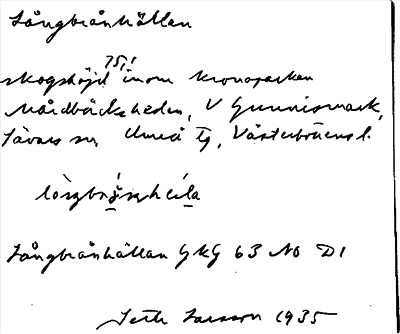 Långbrånhällan
75,!
skogshöjd inom kronoparken
Mårdbäcksheden, V Gunnismark,
Sävars sn, Umeå tg, Västerbottens l.
Långbrånhällan GKG 63 NO D1
Seth Larsson 1935